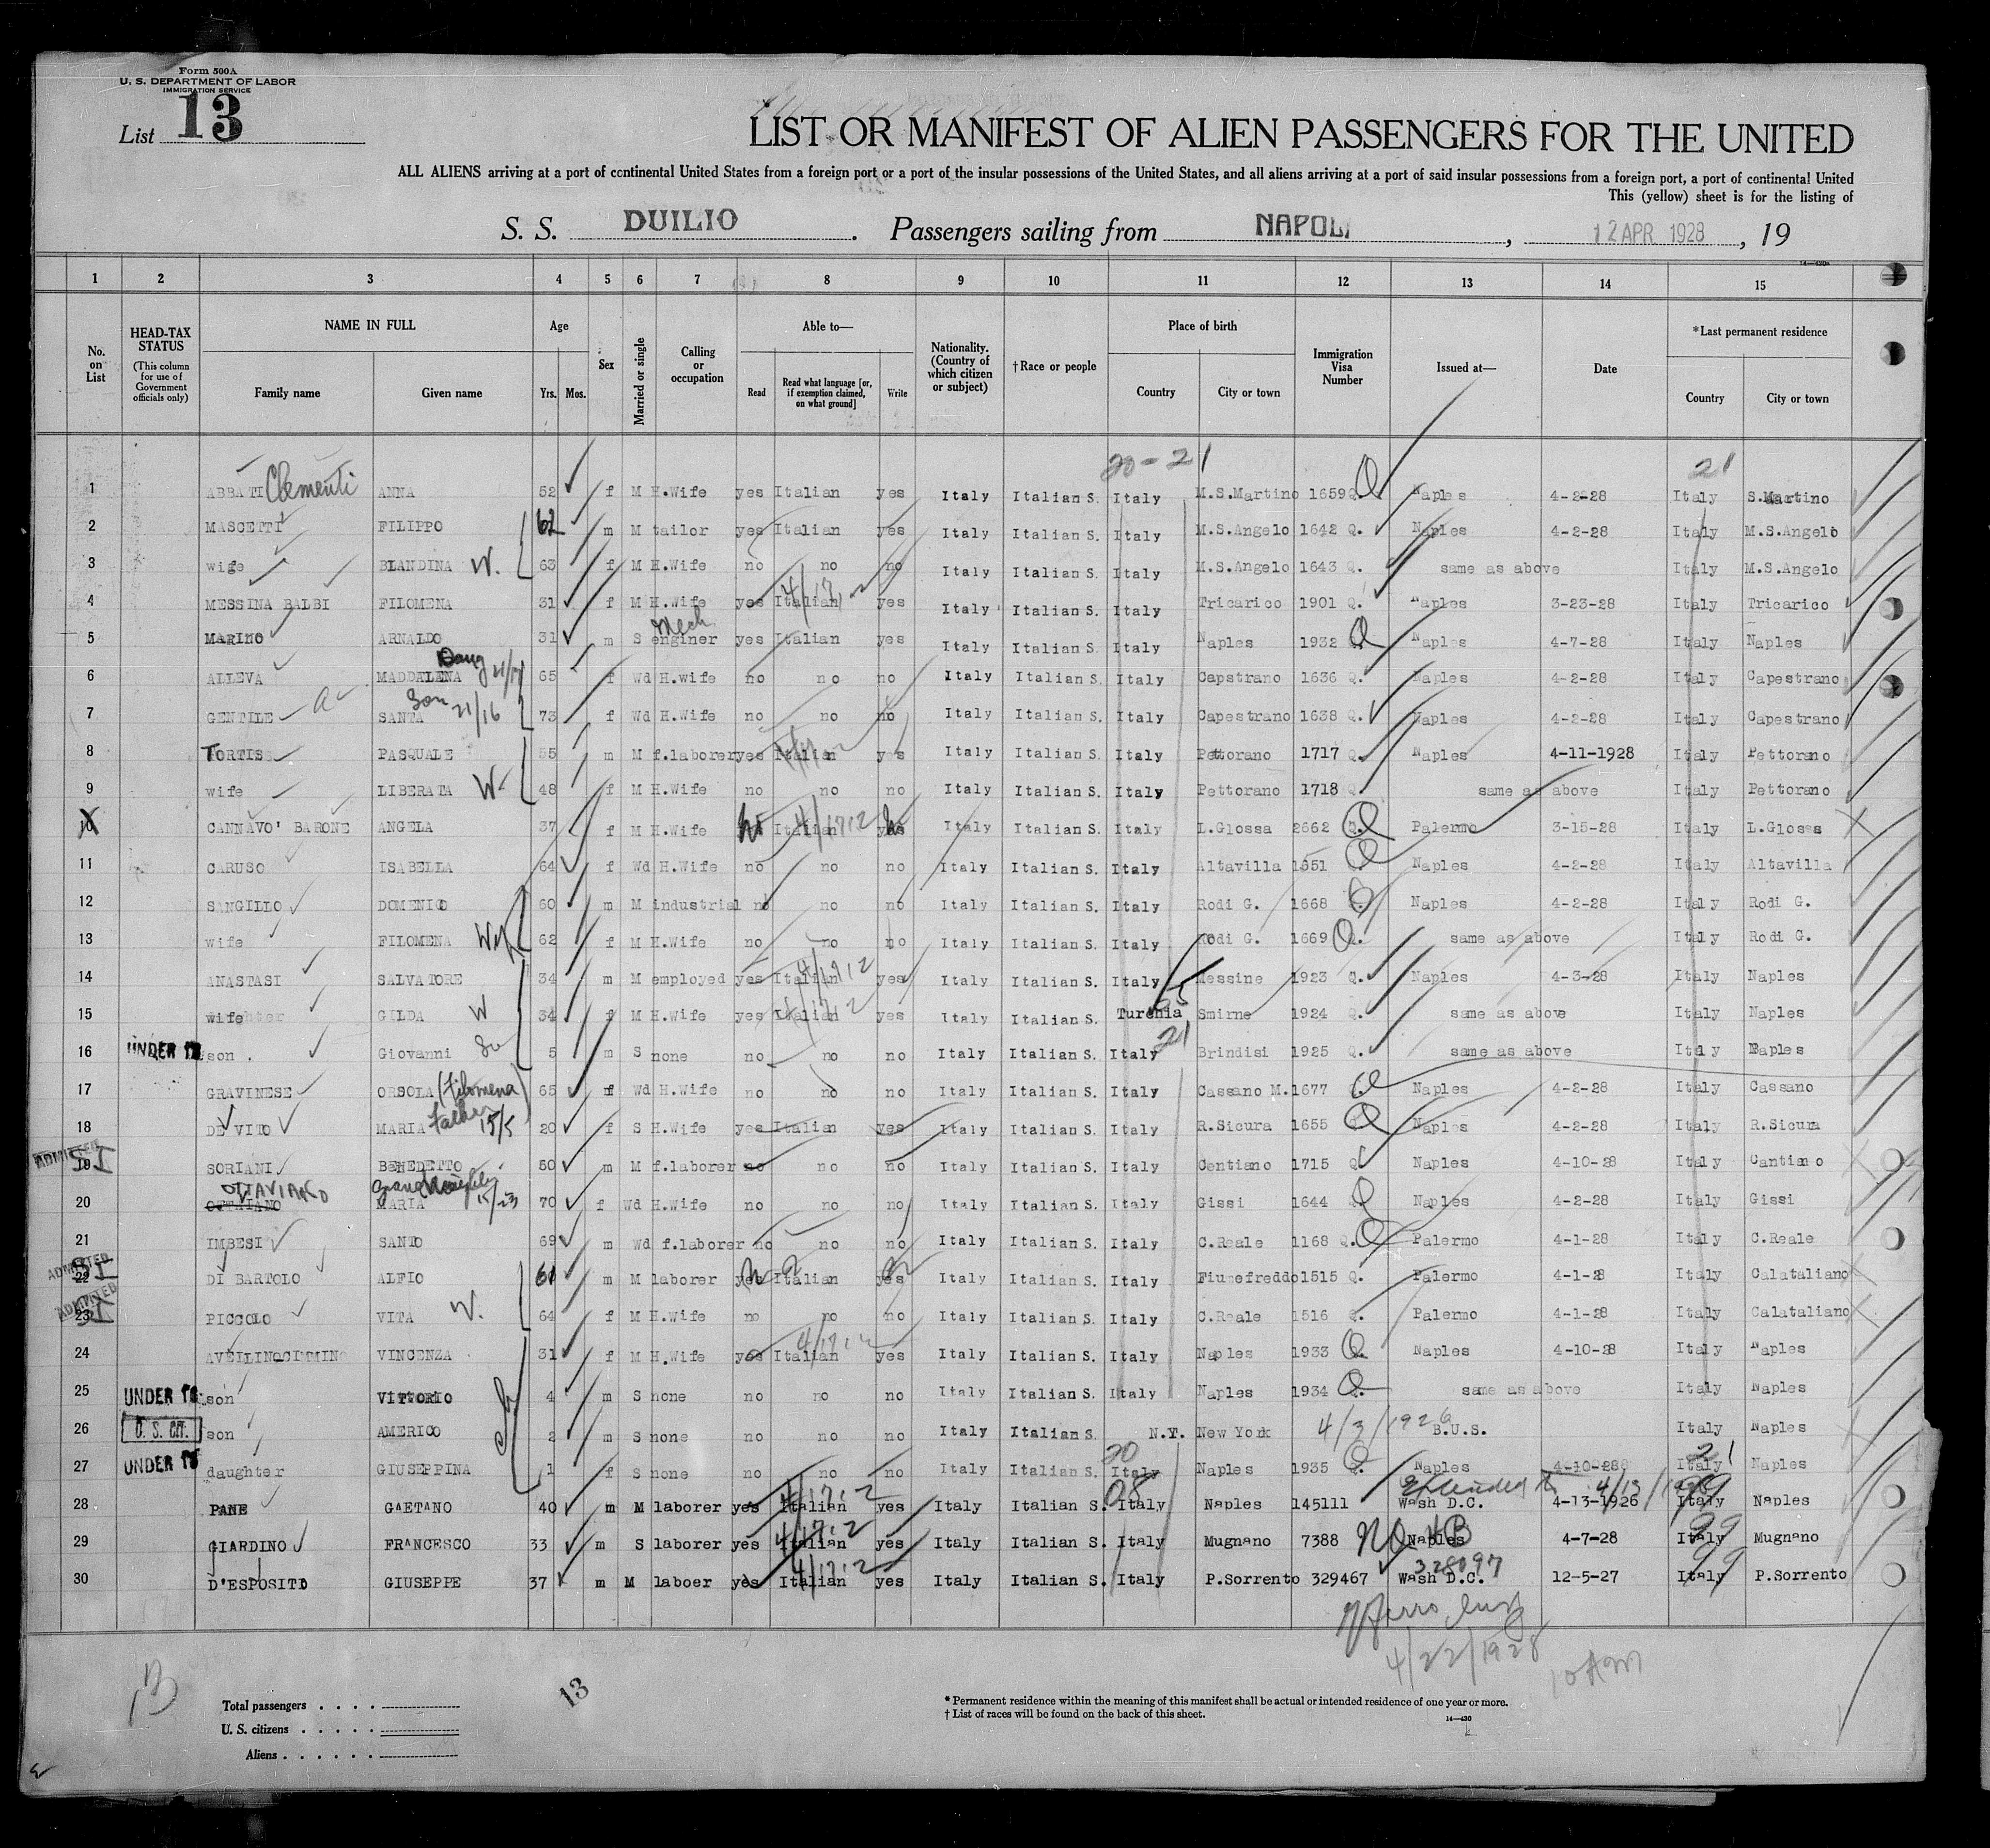 Form 500A
U. S. DEPARTMENT OF LABOR
IMMIGRATION SERVICE
List 13
LIST OR MANIFEST OF ALIEN PASSENGERS FOR THE UNITED
ALL ALIENS arriving at a port of continental United States from a foreign port or a port of the insular possessions of the United States, and all aliens arriving at a port of said insular possessions from a foreign port, a port of continental United
This (yellow) sheet is for the listing of
S. S. DUILIO. Passengers sailing from NAPOLI, 12 APR 1928, 19
1 2 3 4 5 6 7 8 9 10 11 12 13 14 15
No. on List
HEAD-TAX STATUS
(This column for use of Government officials only)
NAME IN FULL
Family name Given name
Age
Yrs. Mos.
Sex
Married or single
Calling or occupation
Able to—
Read
Read what language [or, if exemption claimed, on what ground]
Write
Nationality. (Country of which citizen or subject)
†Race or people
Place of birth
Country City or town
Immigration Visa Number
Issued at—
Date
*Last permanent residence
Country City or town
20-21 21
1 ABBATI Clementi ANNA 52 f M H.Wife yes Italian yes Italy Italian S. Italy M.S.Martino 1659 Q. Naples 4-2-28 Italy S.Martino
2 MASCETTI FILIPPO 62 m M tailor yes Italian yes Italy Italian S. Italy M.S.Angelo 1642 Q. Naples 4-2-28 Italy M.S.Angelo
3 wife BLANDINA W. 63 f M H.Wife no no no Italy Italian S. Italy M.S.Angelo 1643 Q. same as above Italy M.S.Angelo
4 MESSINA BALBI FILOMENA 31 f M H.Wife yes Italian yes Italy Italian S. Italy Tricarico 1901 Q. Naples 3-23-28 Italy Tricarico
Mech
5 MARINO ARNALDO 31 m S enginer yes Italian yes Italy Italian S. Italy Naples 1932 Q Naples 4-7-28 Italy Naples
6 ALLEVA MADDALENA Daug 21/17 65 f Wd H.wife no no no Italy Italian S. Italy Capstrano 1636 Q. Naples 4-2-28 Italy Capestrano
7 GENTILE SANTA Son 21/16 73 f Wd H.Wife no no no Italy Italian S. Italy Capestrano 1638 Q. Naples 4-2-28 Italy Capestrano
8 TORTIS PASQUALE 55 m M f.laborer yes Italian yes Italy Italian S. Italy Pettorano 1717 Q. Naples 4-11-1928 Italy Pettorano
9 wife LIBERATA W 48 f M H.Wife no no no Italy Italian S. Italy Pettorano 1718 Q same as above Italy Pettorano
10 CANNAVO' BARONE ANGELA 37 f M H.Wife Italian 4/17.12 yes Italy Italian S. Italy L.Glossa 2662 Q. Palermo 3-15-28 Italy L.Gloss
11 CARUSO ISABELLA 64 f Wd H.Wife no no no Italy Italian S. Italy Altavilla 1651 Q Naples 4-2-28 Italy Altavilla
12 SANGILLO DOMENICO 60 m M industrial no no no Italy Italian S. Italy Rodi G. 1668 Q. Naples 4-2-28 Italy Rodi G.
13 wife FILOMENA 62 f M H.Wife no no no Italy Italian S. Italy Rodi G. 1669 Q. same as above Italy Rodi G.
14 ANASTASI SALVATORE 34 m M employed yes Italian yes Italy Italian S. Italy Messine 1923 Q. Naples 4-3-28 Italy Naples
15 wife GILDA W 34 f M H.Wife yes Italian yes Italy Italian S. Turchia Smirne 1924 Q. same as above Italy Naples
16 UNDER son . Giovanni 5 m S none no no no Italy Italian S. Italy 21 Brindisi 1925 Q. same as above Italy Naples
17 GRAVINESE ORSOLA (Filomena) 65 f Wd H.Wife no no no Italy Italian S. Italy Cassano M. 1677 Q Naples 4-2-28 Italy Cassano
18 DE VITO MARIA Father 15/5 20 f S H.Wife yes Italian yes Italy Italian S. Italy R.Sicura 1655 Q Naples 4-2-28 Italy R.Sicura
ADMITTED
19 SI SORIANI BENEDETTO 50 m M f.laborer no no no Italy Italian S. Italy Centiano 1715 Q Naples 4-10-28 Italy Cantiano
OTTAVIANO
20 OTTAIANO MARIA 15/23 70 f Wd H.Wife no no no Italy Italian S. Italy Gissi 1644 Q Naples 4-2-28 Italy Gissi
21 IMBESI SANTO 69 m Wd f.laborer no no no Italy Italian S. Italy C.Reale 1168 Q. Palermo 4-1-28 Italy C.Reale
ADMITTED
22 SI DI BARTOLO ALFIO 61 m M laborer yes Italian yes Italy Italian S. Italy Fiumefreddo 1515 Q. Palermo 4-1-28 Italy Calataliano
ADMITTED
23 SI PICCOLO VITA W. 64 f M H.Wife no no no Italy Italian S. Italy C.Reale 1516 Q. Palermo 4-1-28 Italy Calataliano
24 AVELLINO CIMMINO VINCENZA 31 f M H.Wife yes Italian yes Italy Italian S. Italy Naples 1933 Q Naples 4-10-28 Italy Naples
25 UNDER son VITTORIO 4 m S none no no no Italy Italian S. Italy Naples 1934 Q. same as above Italy Naples
26 U. S. CIT. son AMERICO 2 m S none no no no Italy Italian S. N.Y. New York 4/3/1926 B.U.S. Italy Naples
27 UNDER daughter GIUSEPPINA 1 f S none no no no Italy Italian S. 20 Italy Naples 1935 Q. Naples 4-10-28 21 Italy Naples
Extended to 4/13/1928
28 PANE GAETANO 40 m M laborer yes Italian 4/17.12 yes Italy Italian S. 08 Italy Naples 145111 Wash D.C. 4-13-1926 99 Italy Naples
29 GIARDINO FRANCESCO 33 m S laborer yes Italian 4/17.12 yes Italy Italian S. Italy Mugnano 7388 NQ 4B Naples 4-7-28 99 Italy Mugnano
30 D'ESPOSITO GIUSEPPE 37 m M laboer yes Italian 4/17.12 yes Italy Italian S. Italy P.Sorrento 329467 328097 Wash D.C. 12-5-27 99 Italy P.Sorrento
4/22/1928 10 AM
13
Total passengers
U. S. citizens
Aliens
13
* Permanent residence within the meaning of this manifest shall be actual or intended residence of one year or more.
† List of races will be found on the back of this sheet.
14—430